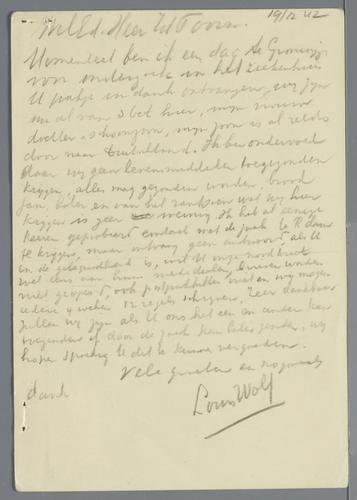 WelEd. Heer 19/12 42
Momenteel ben ik een dag te Groningen
voor onderzoek in het Ziekenhuis
U pakje in dank ontvangen, wij zijn
nu al van 3 Oct hier, mijn vrouw
dochter + schoonzoon, mijn zoon is al reeds
door naar Duitschland. Ik ben ondervoed
daar wij geen levensmiddelen toegezonden
krijgen, alles mag gezonden worden, brood
jam, boter en van het rantsoen wat wij hier
krijgen is zeer weinig. Ik heb al eenige
keeren geprobeerd contact met de zaak te R'dam
te krijgen, maar ontvang geen antwoord, als U
in de gelegenheid is, wilt U onze noodkreet
wel eens aan hun mededeelen, brieven worden
niet geopend, ook postpakketten niet en wij mogen
iedere 4 weken 12 regels schrijven. Zeer dankbaar
zullen wij zijn als U ons het een en ander kan
of door de zaak kan laten zenden, wij
hopen spoedig U dit te kunnen vergoeden.
Vele groeten en nogmaals
dank
Louis Wolf